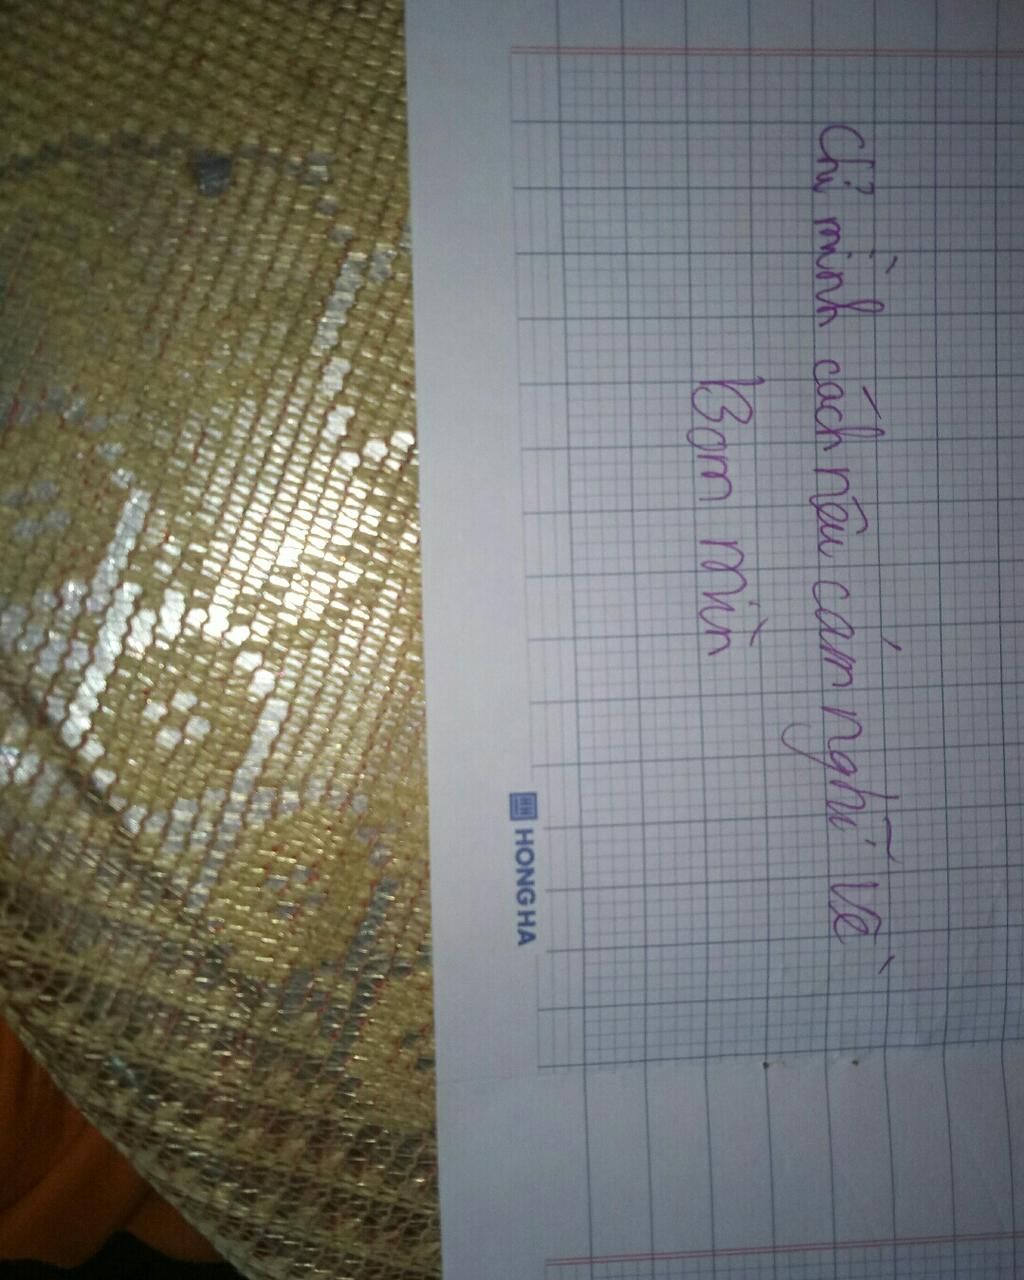 Chỉ mình cách nêu cảm nghĩ về
Bom mìn
HONG HA